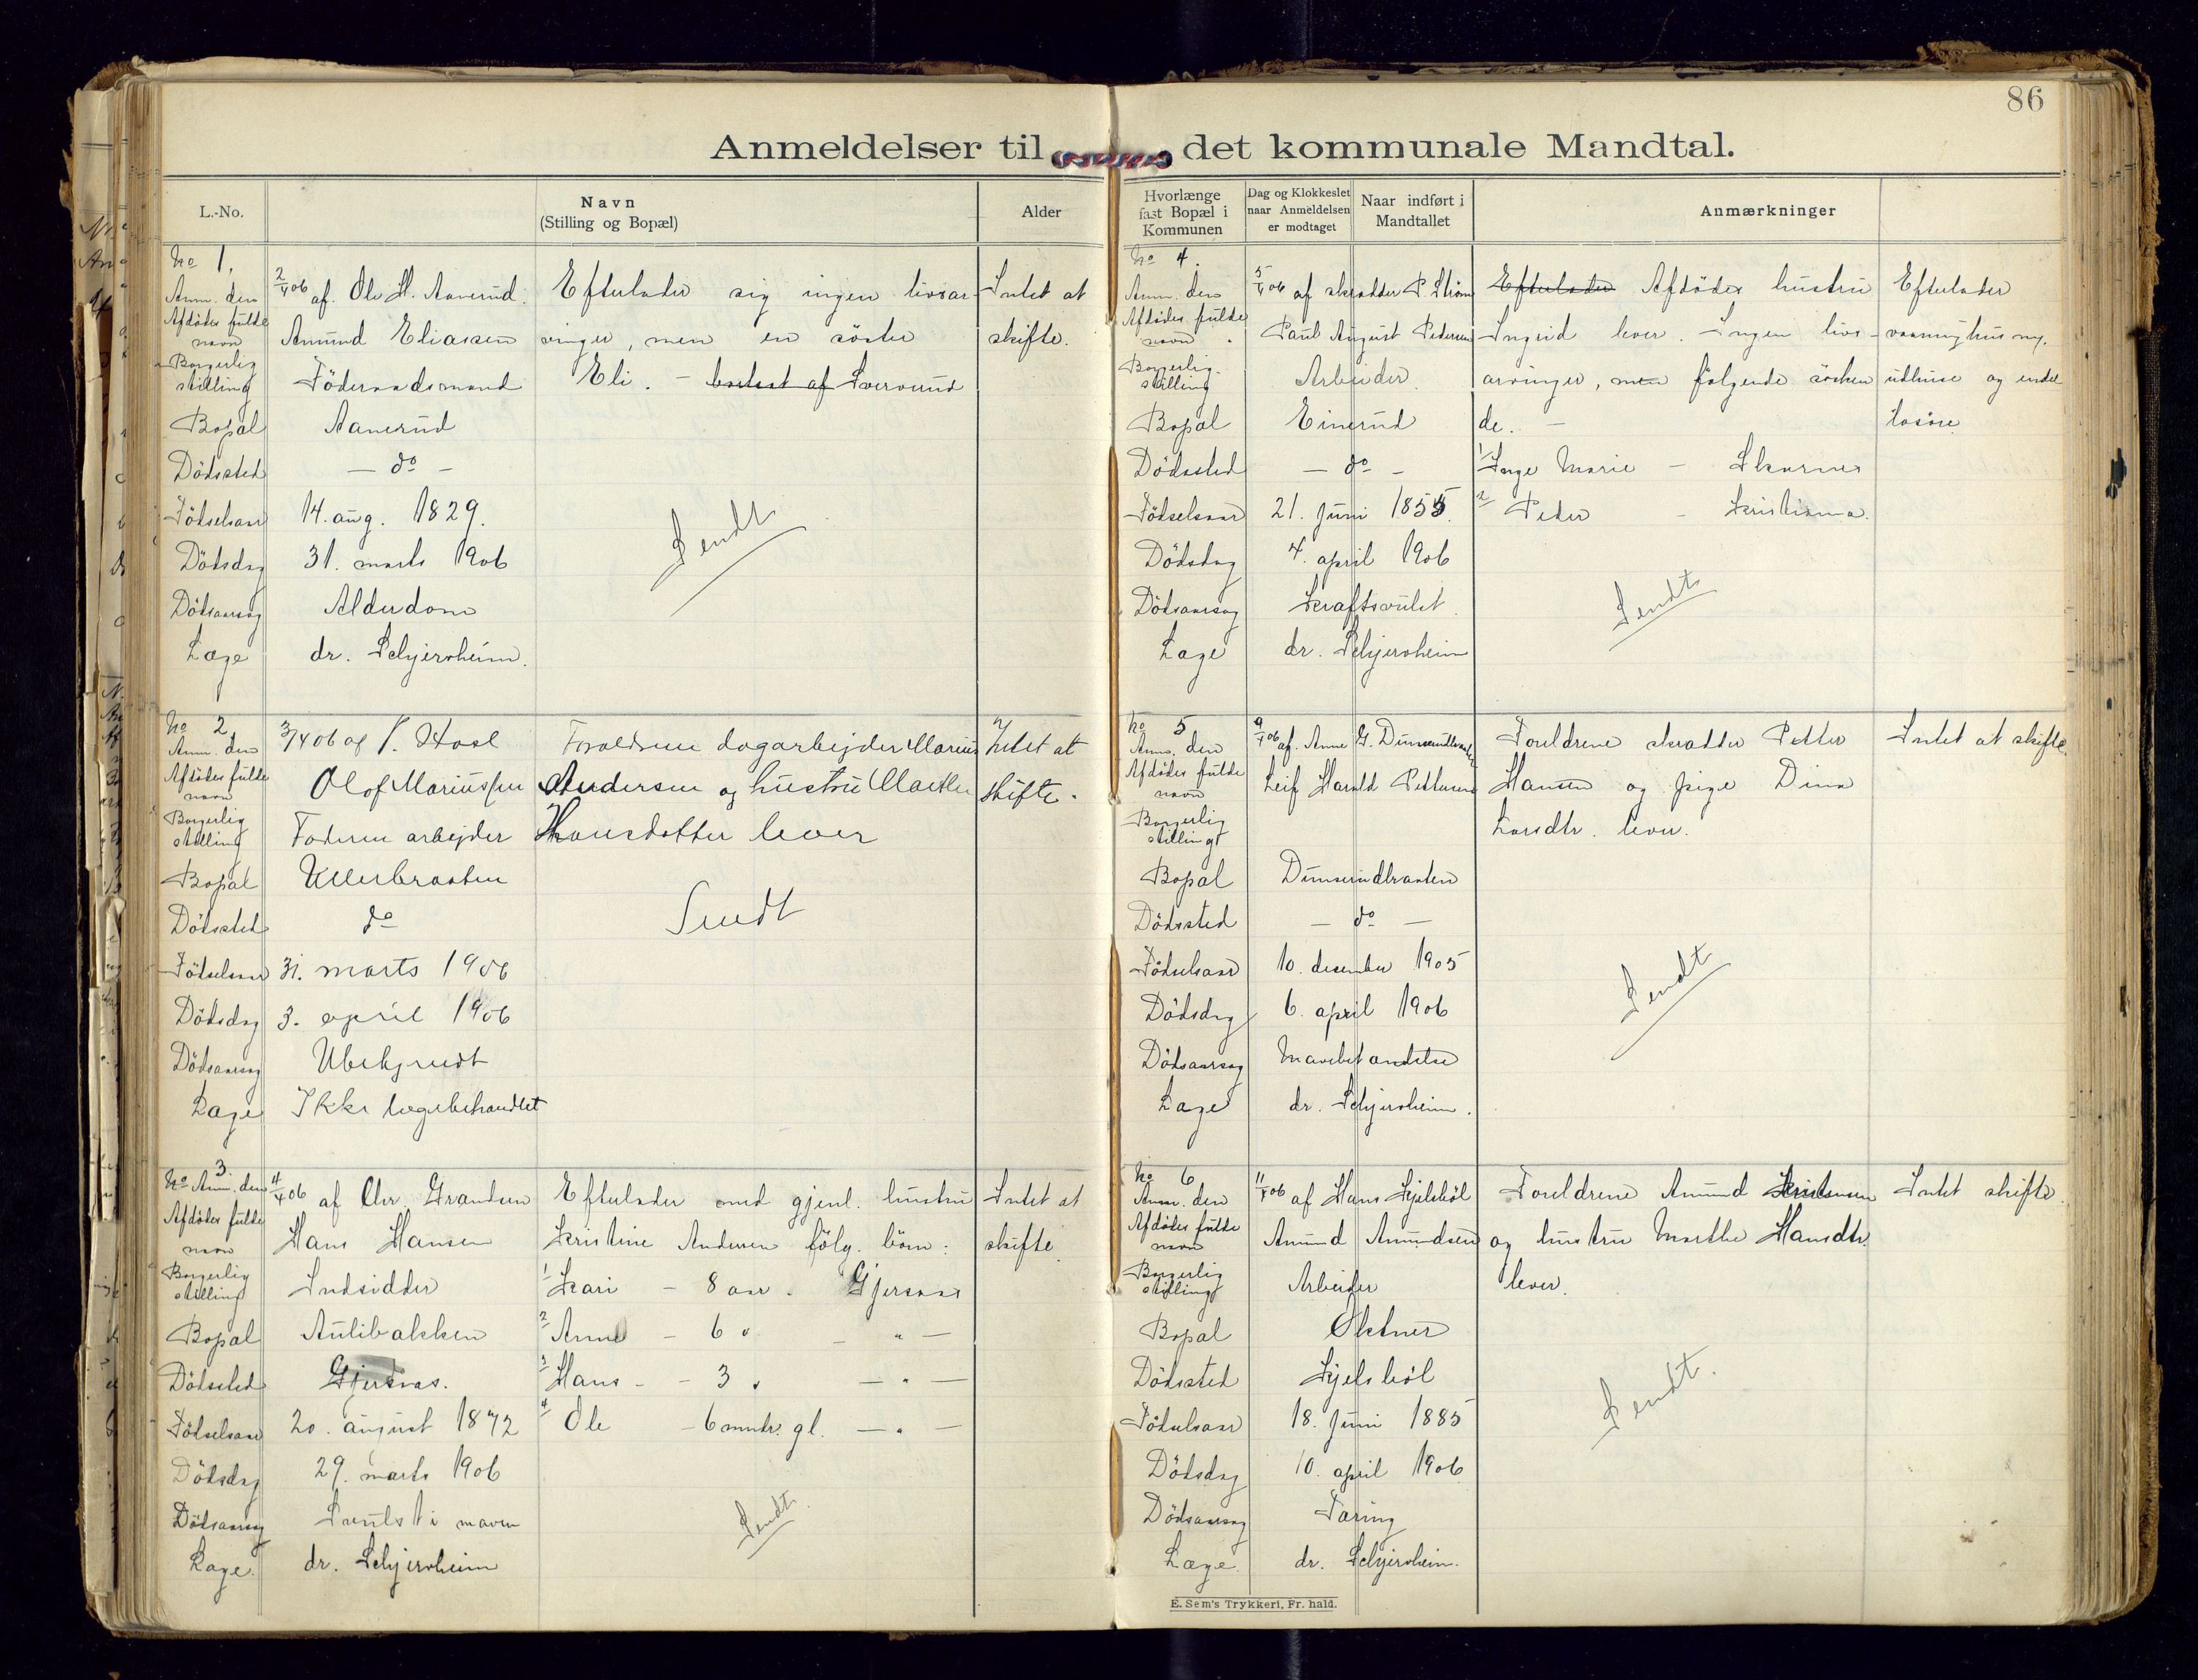 86
Anmeldelser til det kommunale Mandtal.
L.-No.
Navn
(Stilling og Bopæl)
Alder
No 1.
Anm. den 2/4 06 af. Ole H. Aanerud.
Afdødes fulde navn Amund Eliassen
Borgerlig stilling Föderaadsmand
Bopæl Aanerud
Dödssted — do —
Födselsaar 14. aug. 1829.
Dödsdag 31. marts 1906
Dödsaarsag Alderdom
Læge dr. Schjersheim.
Efterlader sig ingen livsar-
vinger, men en söster
Eli. — bosat af Sververud
Sendt
Intet at
skifte.
No 2
Anm. den 3/4 06 af
Afdødes fulde navn Olof Mariussen
Borgerlig stilling Faderen arbejder
Bopæl Ullerbraaten
Dödssted do
Födselsaar 31. marts 1906
Dödsdag 3. april 1906
Dödsaarsag Ubekjendt
Læge Ikke lægebehandlet
Foraldrene dagarbejder Marius
Andersen og hustru Marthe
Hansdatter lever
Sendt
Intet at
skifte.
No 3.
Anm. den 4/4 06 af Chr. Grandsen
Afdødes fulde navn Hans Hansen
Borgerlig stilling Indsidder
Bopæl Aulibakken
Dödssted Gjersnas.
Födselsaar 20. august 1872
Dödsdag 29. marts 1906
Dödsaarsag Svulst i maven
Læge. dr. Schjersheim
Efterlader med gjenl. hustru
Kristine Andersen fölg. börn:
1 Kari — 8 aar. Gjersnas
2 Anne — 6 " — " —
3 Hans — 3 " — " —
4 Ole — 6 mndr. gl. — " —
Sendt
Intet at
skifte
Hvorlænge
fast Bopæl i
Kommunen
Dag og Klokkeslet
naar Anmeldelsen
er modtaget
Naar indført i
Mandtallet
Anmærkninger
No 4.
Anm. den 5/4 06 af skrædder P. Ström
Afdødes fulde navn Paul August Pedersen
Borgerlig stilling Arbeider.
Bopæl Einerud
Dödssted — do —
Födselsaar 21. Juni 1855.
Dödsdag 4. april 1906
Dödsaarsag Kraftsvulst.
Læge dr. Schjersheim
Efterlader Afdödes hustru
Ingrid lever. Ingen livs-
arvinger, men fölgende sösken
de. —
1 Inge Marie — Skarnes
2 Peder — Kristiania.
Sendt
Efterlader
vaaninghus ny,
udhuse og endel
lösöre
No 5
Anm. den 9/4 06 af. Anne G. Dunserudbraaten
Afdødes fulde navn Leif Harald Pettersen
Borgerlig stilling
Bopæl Dunserudbraaten
Dödssted — do —
Födselsaar 10. desember 1905
Dödsdag 6. april 1906
Dödsaarsag Mavebetændelse
Læge dr. Schjersheim.
Foreldrene skrædder Petter
Hansen og pige Dina
Larsdtr. lever.
Sendt
Intet at skifte.
No 6
Anm. den 11/4 06 af Hans Kjelsböl
Afdødes fulde navn Amund Amundsen
Borgerlig stilling Arbeider
Bopæl
Dödssted Kjelsböl
Födselsaar 18. Juni 1885
Dödsdag 10. april 1906
Dödsaarsag Tæring
Læge. dr. Schjersheim.
Foreldrene Amund Kristensen
og hustru Marthe Hansdtr.
lever.
Sendt.
Intet skifte.
E. Sem's Trykkeri, Fr. hald.